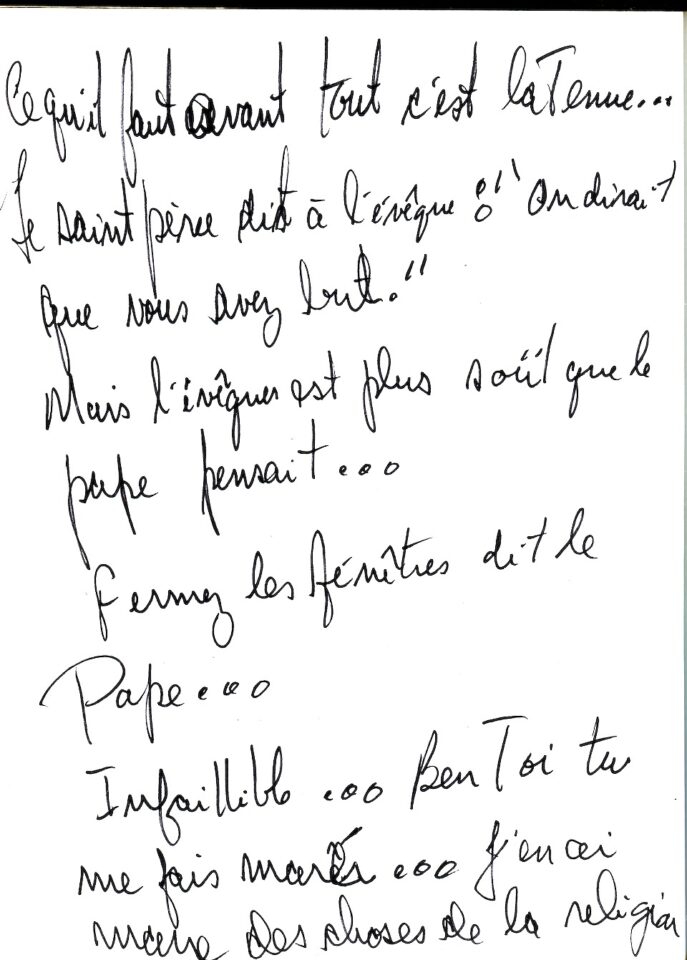 Ce qu'il faut avant tout c'est la Tenue...
Le saint père dit à l'évêque : "On dirait
que vous avez but."
Mais l'évêque est plus soûl que le
pape pensait...
Fermez les fénêtres dit le
Pape...
Infaillible ... Ben Toi tu
me fais marér ... J'en ai
marre des choses de la religion